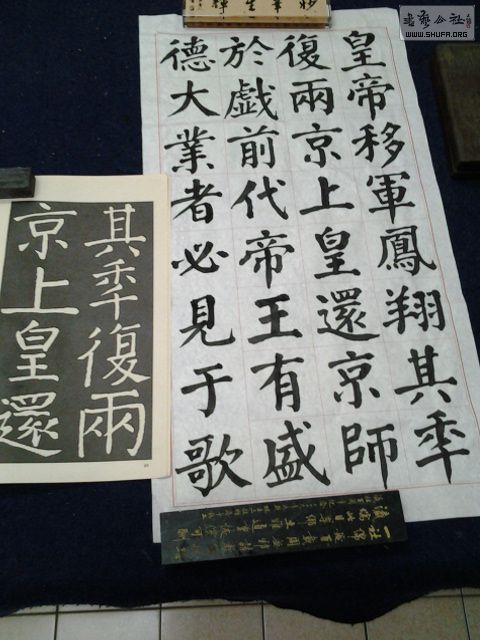 書藝公社
WWW.SHUFA.ORG
皇帝移軍鳳翔其秊
復兩京上皇還京師
於戲前代帝王有盛
德大業者必見于歌
其秊復兩
京上皇還